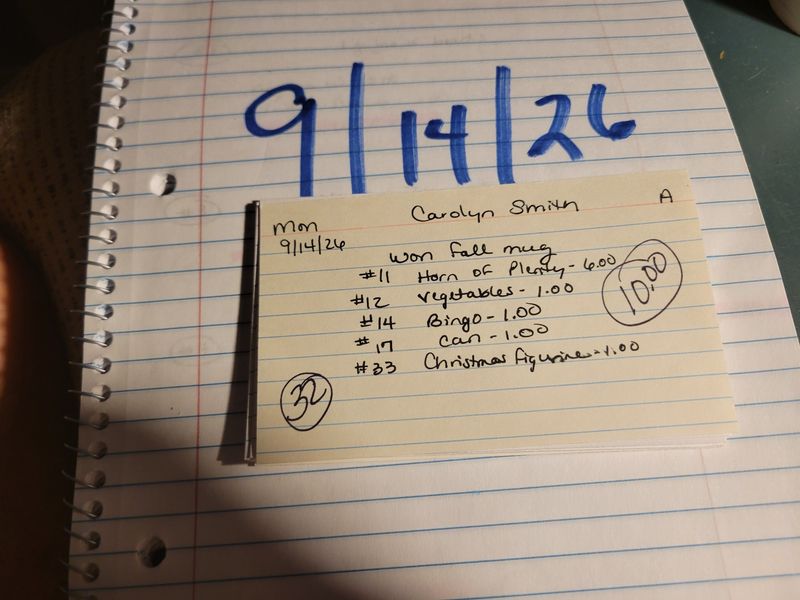 9/14/26
Mon
Carolyn Smith
A
9/14/26
Won Fall mug
#11 Horn of Plenty - 6.00
10.00
#12 Vegetables - 1.00
#14 Bingo - 1.00
#17 Can - 1.00
#33 Christmas figurine - 1.00
32